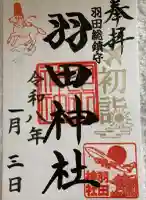 奉拝
初詣
羽田総鎮守
羽田神社
令和八年
一月三日